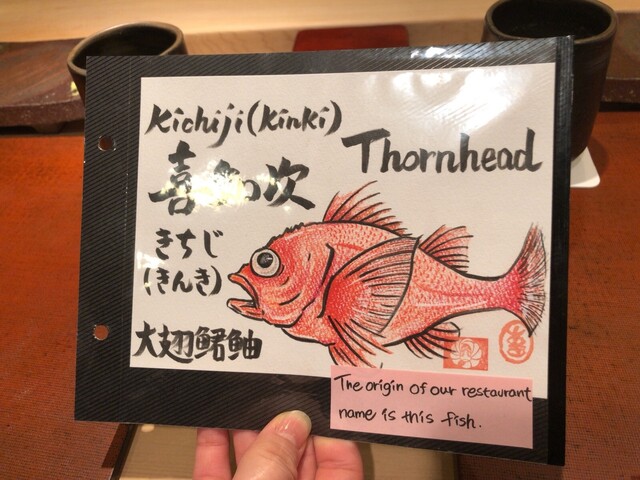 Kichiji(kinki)
Thornhead
きちじ
(きんき)
大翅鮶鮋
The origin of our restaurant
name is this fish.